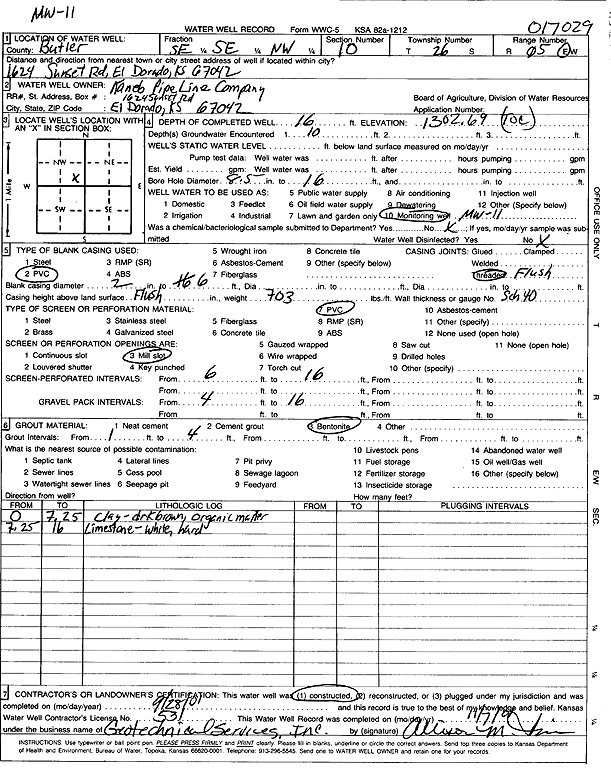 MW-11
017029
WATER WELL RECORD Form WWC-5 KSA 82a-1212
1 LOCATION OF WATER WELL: Fraction Section Number Township Number Range Number
County: Butler SE ¼ SE ¼ NW ¼ 10 T 26 S R 05 E/W
Distance and direction from nearest town or city street address of well if located within city?
1624 Sunset Rd, El Dorado, KS 67042
2 WATER WELL OWNER: Kaneb Pipe Line Company
RR#, St. Address, Box # : 1624 Sunset Rd Board of Agriculture, Division of Water Resources
City, State, ZIP Code : El Dorado, KS 67042 Application Number:
3 LOCATE WELL'S LOCATION WITH AN "X" IN SECTION BOX:
N
NW NE
X
W E
SW SE
S
1 Mile
4 DEPTH OF COMPLETED WELL 16 ft. ELEVATION: 1302.69 (TOC)
Depth(s) Groundwater Encountered 1. 10 ft. 2. ft. 3. ft.
WELL'S STATIC WATER LEVEL ft. below land surface measured on mo/day/yr
Pump test data: Well water was ft. after hours pumping gpm
Est. Yield gpm: Well water was ft. after hours pumping gpm
Bore Hole Diameter 8.5 in. to 16 ft., and in. to ft.
WELL WATER TO BE USED AS: 5 Public water supply 8 Air conditioning 11 Injection well
1 Domestic 3 Feedlot 6 Oil field water supply 9 Dewatering 12 Other (Specify below)
2 Irrigation 4 Industrial 7 Lawn and garden only 10 Monitoring well MW-11
Was a chemical/bacteriological sample submitted to Department? Yes No X If yes, mo/day/yr sample was submitted
Water Well Disinfected? Yes No X
5 TYPE OF BLANK CASING USED: 5 Wrought iron 8 Concrete tile CASING JOINTS: Glued Clamped
1 Steel 3 RMP (SR) 6 Asbestos-Cement 9 Other (specify below) Welded
2 PVC 4 ABS 7 Fiberglass Threaded Flush
Blank casing diameter 2 in. to 6 ft., Dia in. to ft., Dia in. to ft.
Casing height above land surface Flush in., weight .703 lbs./ft. Wall thickness or gauge No. Sch. 40
TYPE OF SCREEN OR PERFORATION MATERIAL: 7 PVC 10 Asbestos-cement
1 Steel 3 Stainless steel 5 Fiberglass 8 RMP (SR) 11 Other (specify)
2 Brass 4 Galvanized steel 6 Concrete tile 9 ABS 12 None used (open hole)
SCREEN OR PERFORATION OPENINGS ARE: 5 Gauzed wrapped 8 Saw cut 11 None (open hole)
1 Continuous slot 3 Mill slot 6 Wire wrapped 9 Drilled holes
2 Louvered shutter 4 Key punched 7 Torch cut 10 Other (specify)
SCREEN-PERFORATED INTERVALS: From 6 ft. to 16 ft., From ft. to ft.
From ft. to ft., From ft. to ft.
GRAVEL PACK INTERVALS: From 4 ft. to 16 ft., From ft. to ft.
From ft. to ft., From ft. to ft.
6 GROUT MATERIAL: 1 Neat cement 2 Cement grout 3 Bentonite 4 Other
Grout Intervals: From 1 ft. to 4 ft., From ft. to ft., From ft. to ft.
What is the nearest source of possible contamination: 10 Livestock pens 14 Abandoned water well
1 Septic tank 4 Lateral lines 7 Pit privy 11 Fuel storage 15 Oil well/Gas well
2 Sewer lines 5 Cess pool 8 Sewage lagoon 12 Fertilizer storage 16 Other (specify below)
3 Watertight sewer lines 6 Seepage pit 9 Feedyard 13 Insecticide storage
Direction from well? How many feet?
FROM TO LITHOLOGIC LOG FROM TO PLUGGING INTERVALS
0 7.25 Clay-drk brown, organic matter
7.25 16 Limestone-white, hard
7 CONTRACTOR'S OR LANDOWNER'S CERTIFICATION: This water well was (1) constructed, (2) reconstructed, or (3) plugged under my jurisdiction and was
completed on (mo/day/year) 9/28/01 and this record is true to the best of my knowledge and belief. Kansas
Water Well Contractor's License No. 531 This Water Well Record was completed on (mo/day/yr) 11/7/01
under the business name of Geotechnical Services, Inc. by (signature)
INSTRUCTIONS: Use typewriter or ball point pen. PLEASE PRESS FIRMLY and PRINT clearly. Please fill in blanks, underline or circle the correct answers. Send top three copies to Kansas Department
of Health and Environment, Bureau of Water, Topeka, Kansas 66620-0001. Telephone: 913-296-5545. Send one to WATER WELL OWNER and retain one for your records.
OFFICE USE ONLY
T
R
E/W
SEC.
¼
¼
¼